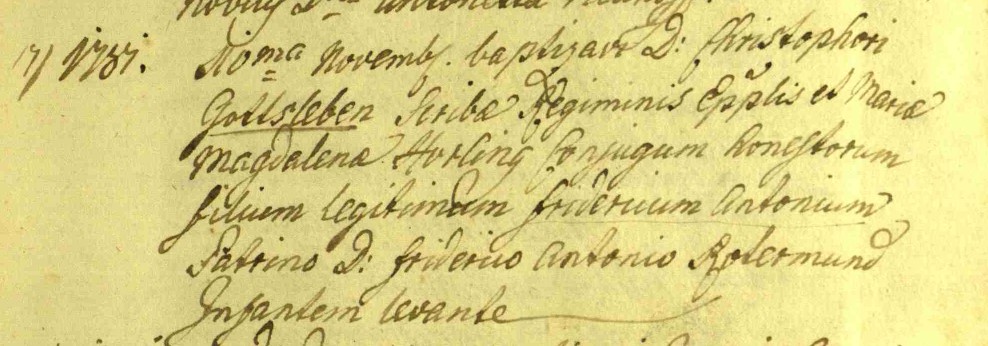 Antonetta
1731. 10ma Novemb. baptizavi D: Christophori
Gottsleben Scribæ Regiminis Epplis et Mariæ
Magdalenæ Horling Conjugum honestorum
filium legitimum fridericum Antonium
Patrino D: friderico Antonio Rotermund
Infantem levante